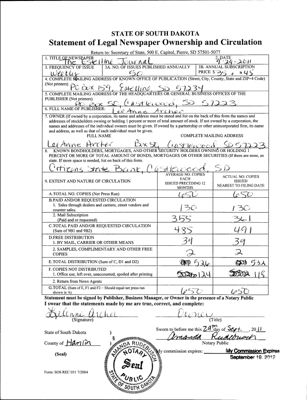 STATE OF SOUTH DAKOTA
Statement of Legal Newspaper Ownership and Circulation
Return to: Secretary of State, 500 E. Capitol, Pierre, SD 57501-5077
1. TITLE OF NEWSPAPER
The Estelline Journal
2. DATE
9-24-2011
3. FREQUENCY OF ISSUE
Weekly
3A. NO. OF ISSUES PUBLISHED ANNUALLY
3B. ANNUAL SUBSCRIPTION
PRICE $ 35 + $45
4. COMPLETE MAILING ADDRESS OF KNOWN OFFICE OF PUBLICATION (Street, City, County, State and ZIP+4 Code)
(Not printers)
PO Box 159, Estelline, SD 57234
5. COMPLETE MAILING ADDRESS OF THE HEADQUARTERS OF GENERAL BUSINESS OFFICES OF THE
PUBLISHER (Not printers)
Castlewood, SD 57223
6. FULL NAME OF PUBLISHER:
LeeAnne Archer
7. OWNER (If owned by a corporation, its name and address must be stated and
FULL NAME
COMPLETE MAILING ADDRESS
LeeAnne Archer
Castlewood, SD 57223
8. KNOWN BONDHOLDERS, MORTGAGEES, AND OTHER SECURITY HOLDERS OWNING OR HOLDING 1
PERCENT OR MORE OF TOTAL AMOUNT OF BONDS, MORTGAGES OR OTHER SECURITIES (If there are none, so
state. If more space is needed, list on back of this form.
Citizens State Bank, Castlewood, SD
9. EXTENT AND NATURE OF CIRCULATION
AVERAGE NO. COPIES
ISSUED PRECEDING 12
MONTHS
ACTUAL NO. COPIES
ISSUED
NEAREST TO FILING DATE
A. TOTAL NO. COPIES (Net Press Run)
650
650
B. PAID AND/OR REQUESTED CIRCULATION
1. Sales through dealers and carriers, street vendors and
counter sales.
130
130
2. Mail Subscription
(Paid and/or requested)
355
361
C. TOTAL PAID AND/OR REQUESTED CIRCULATION
(Sum of 9B1 and 9B2)
485
491
D. FREE DISTRIBUTION
1. BY MAIL, CARRIER OR OTHER MEANS
39
39
2. SAMPLES, COMPLIMENTARY AND OTHER FREE
COPIES
2
2
E. TOTAL DISTRIBUTION (Sum of C, D1 and D2)
526
532
F. COPIES NOT DISTRIBUTED
1. Office use, left over, unaccounted, spoiled after printing
124
118
2. Return from News Agents
G. TOTAL (Sum of E, F1 and F2 - Should equal net press run
shown in A)
650
650
Statement must be signed by Publisher, Business Manager, or Owner in the presence of a Notary Public
I swear that the statements made by me are true, correct, and complete:
LeeAnne Archer
Owner
(Signature)
(Title)
State of South Dakota )
County of Hamlin )
(Seal)
Sworn to before me this 29th day of Sept. 2011
Notary Public
My commission expires:
My Commission Expires
AMANDA RUDEBUSCH
NOTARY
Seal
PUBLIC
STATE OF SOUTH DAKOTA